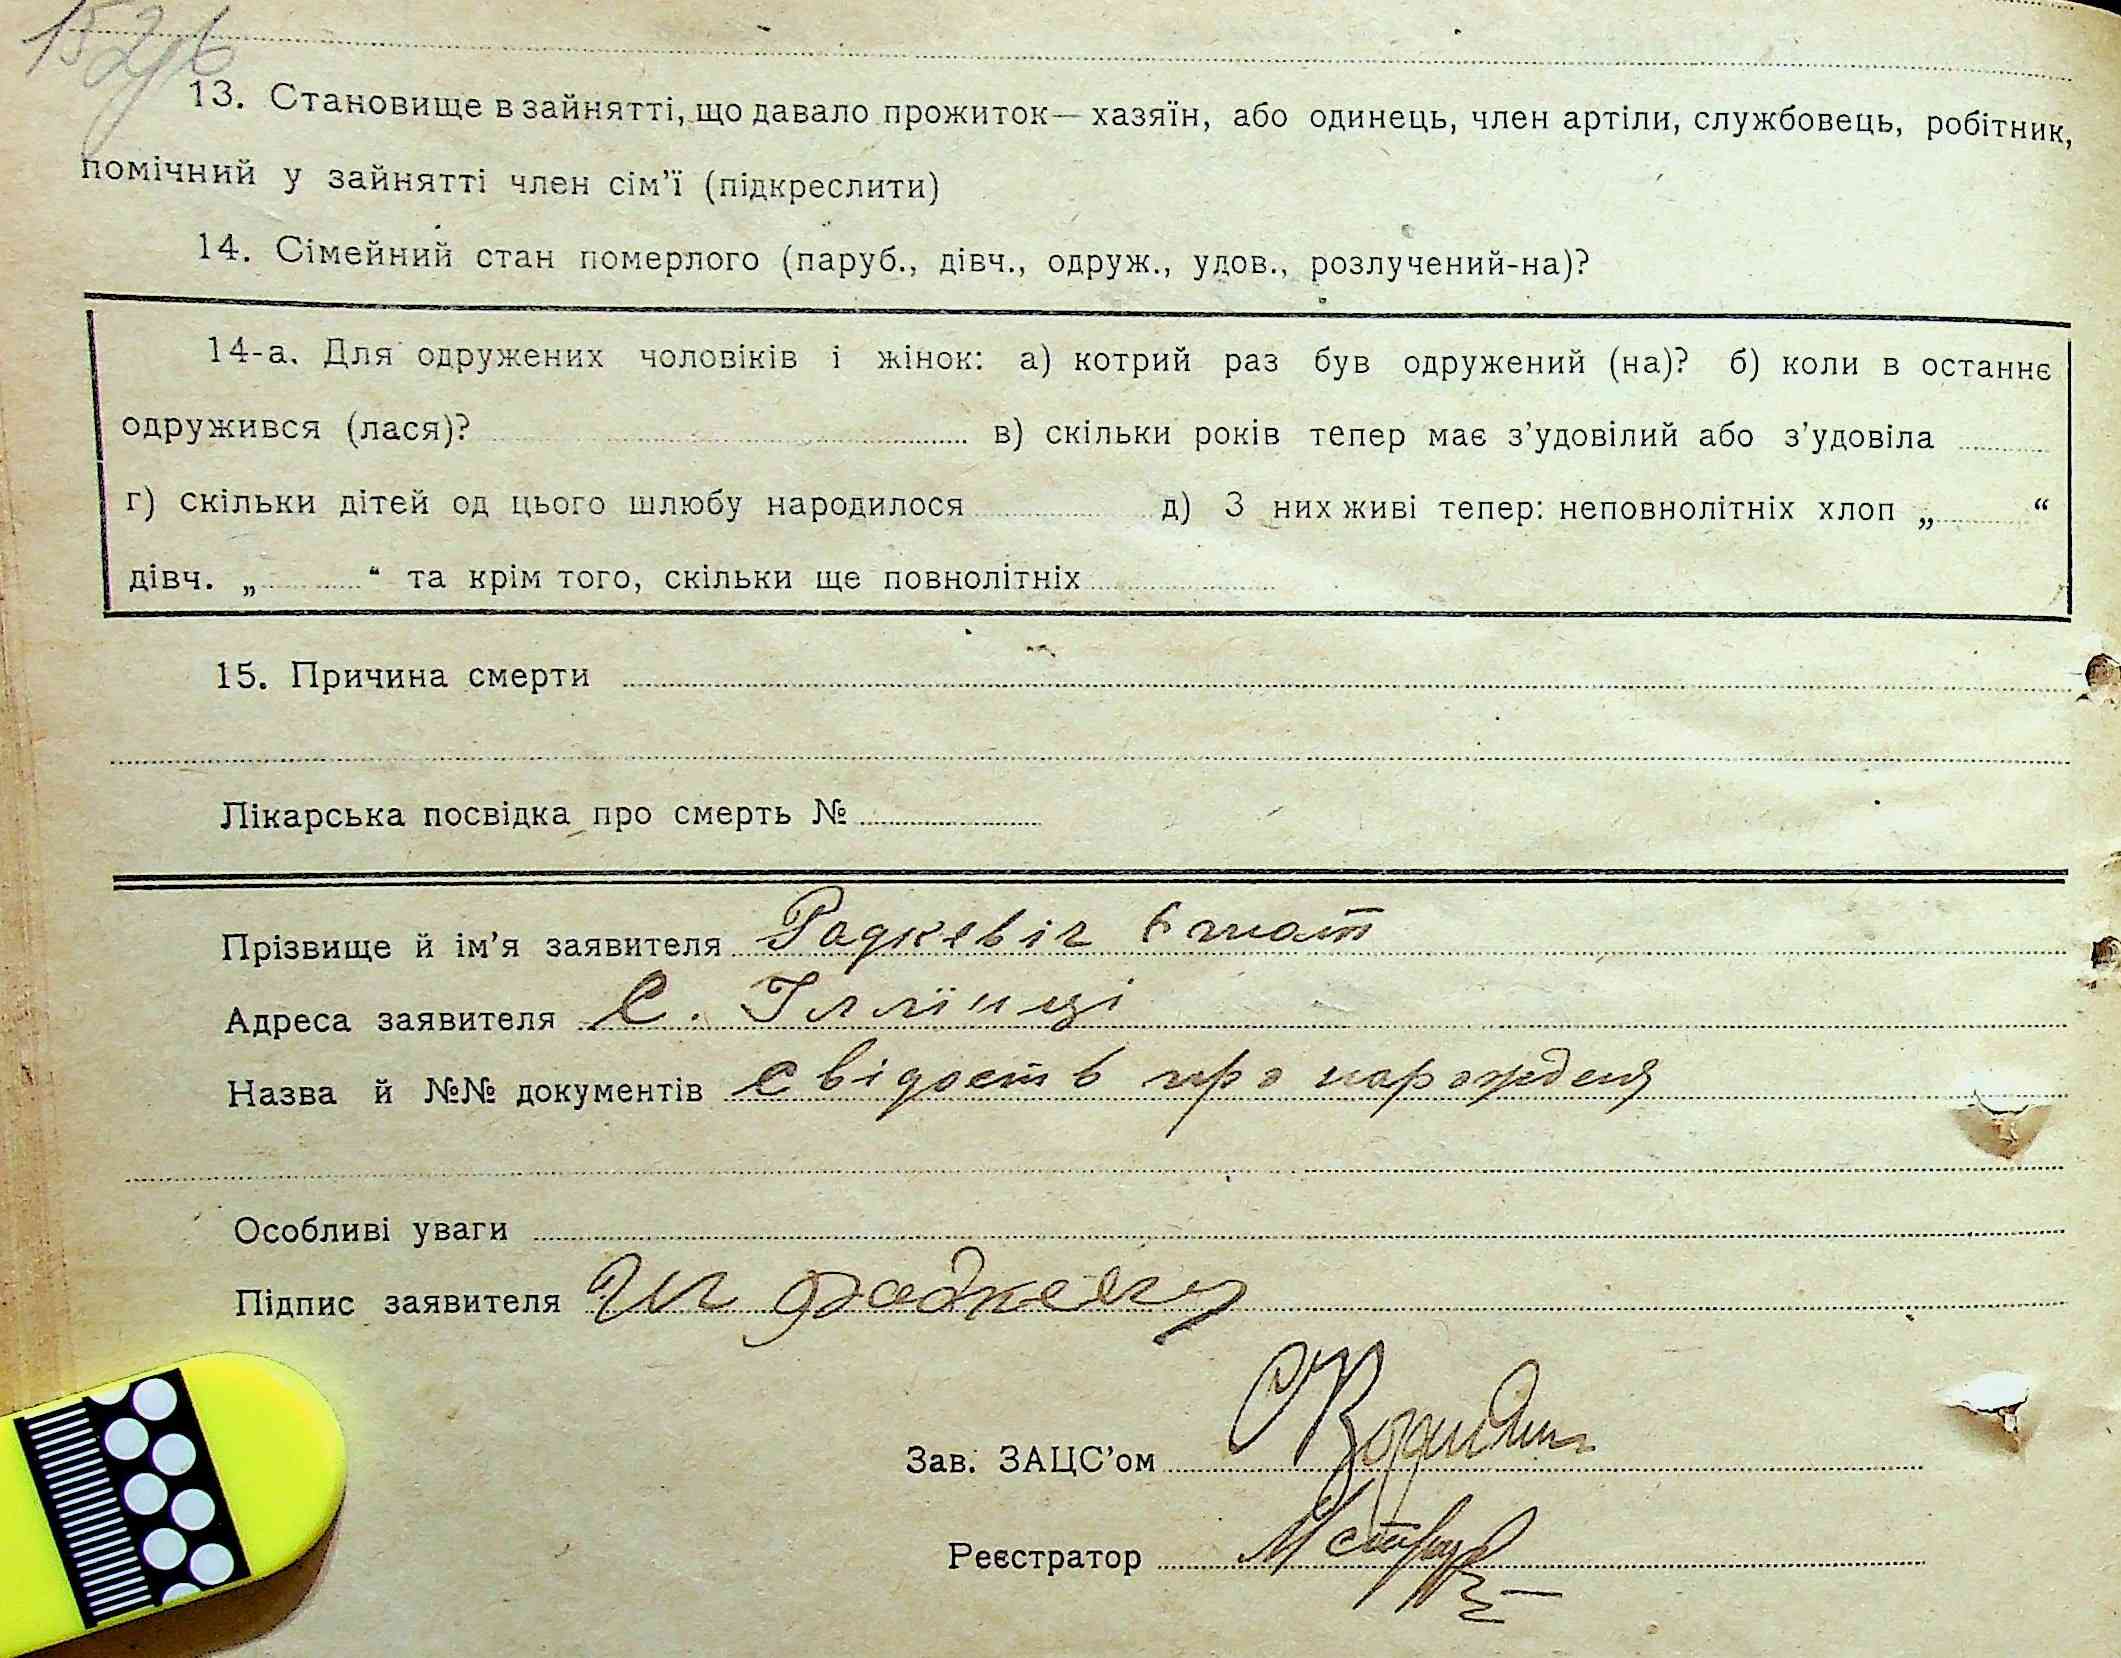 13. Становище в зайнятті, що давало прожиток— хазяїн, або одинець, член артіли, службовець, робітник,
помічний у зайнятті член сім'ї (підкреслити)
14. Сімейний стан померлого (паруб., дівч., одруж., удов., розлучений-на)?
14-а. Для одружених чоловіків і жінок: а) котрий раз був одружений (на)? б) коли в останнє
одружився (лася)? в) скільки років тепер має з'удовілий або з'удовіла
г) скільки дітей од цього шлюбу народилося д) З них живі тепер: неповнолітніх хлоп „ “
дівч. „ “ та крім того, скільки ще повнолітніх
15. Причина смерти
Лікарська посвідка про смерть №
Прізвище й ім'я заявителя Радкевіч
Адреса заявителя С. Іллінці
Назва й №№ документів свідоств про нарожденя
Особливі уваги
Підпис заявителя
Зав. ЗАЦС'ом
Реєстратор